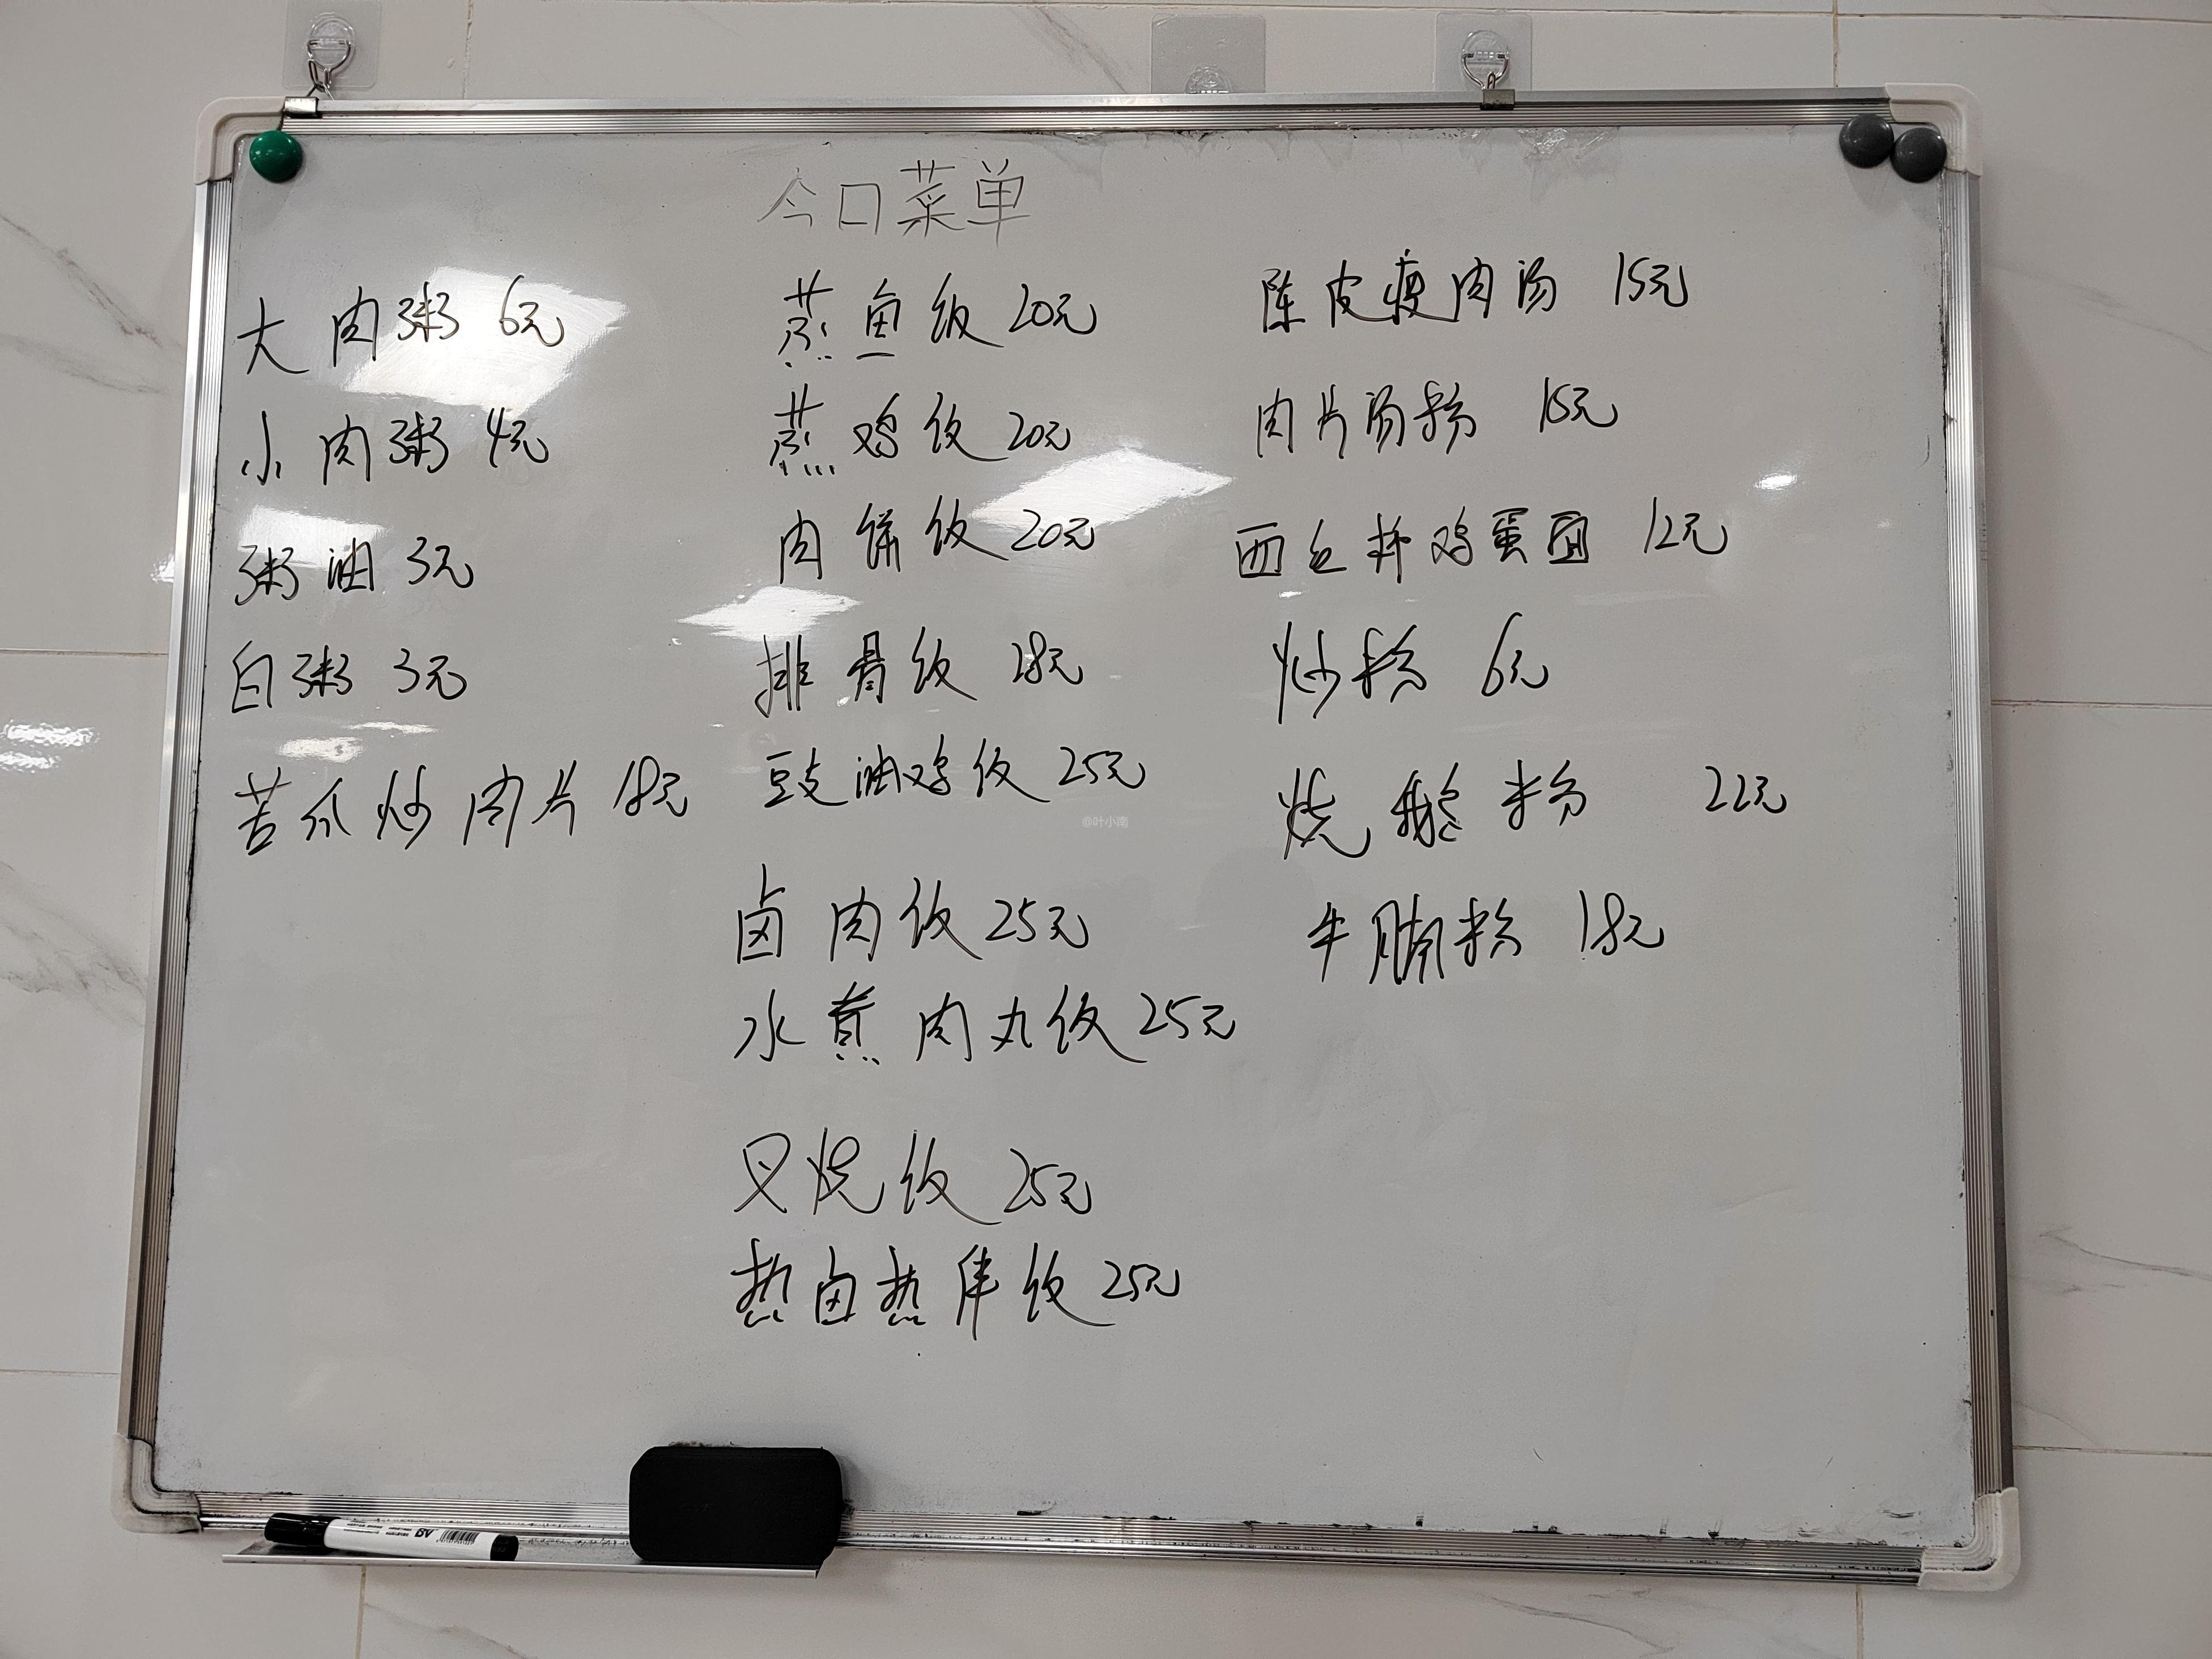 今日菜单
大肉粥 6元
小肉粥 4元
粥油 3元
白粥 3元
苦瓜炒肉片 18元
蒸鱼饭 20元
蒸鸡饭 20元
肉饼饭 20元
排骨饭 18元
豉油鸡饭 25元
卤肉饭 25元
水煮肉丸饭 25元
叉烧饭 25元
热卤热伴饭 25元
陈皮瘦肉汤 15元
肉片汤粉 15元
西红柿鸡蛋面 12元
炒粉 6元
烧鹅粉 22元
牛腩粉 18元
@叶小南